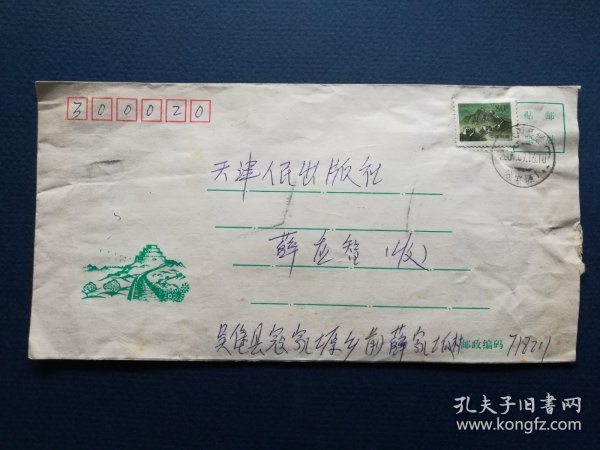 300020
贴 邮
天津人民出版社
薛应智 (收)
吴堡县寇家塬乡前薛家塬村 邮政编码 718211
孔夫子旧书网
www.kongfz.com